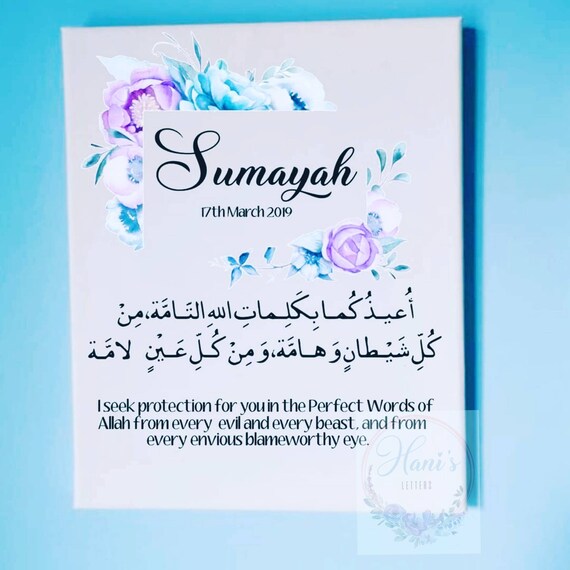 Sumayah
17th March 2019
أُعِيذُكُمَا بِكَلِمَاتِ اللهِ التَامَّة، مِنْ
كُلِّ شَيْطَانٍ وَ هَامَّة، وَ مِنْ كُلِّ عَيْنٍ لامَة
I seek protection for you in the Perfect Words of
Allah from every evil and every beast, and from
every envious blameworthy eye.
Hani's
LETTERS